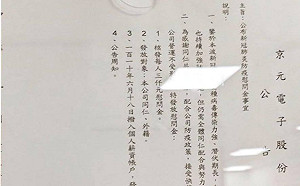 京元電子股份
公告
主旨：公布新冠肺炎防疫慰問金事宜
說明：
一、鑒於本波新
種病毒傳染力強、潛伏期長，
也持續加強
但仍需全體同仁配合與努力
二、為感謝同仁
配合公司防疫政策，接受快
公司營運不受
特發放慰問金：
1、核發每人三仟元慰問金。
2、發放對象：本公司同仁、外籍
3、一百一十年六月十八日撥入個人薪資帳戶，發
4、公告周知。